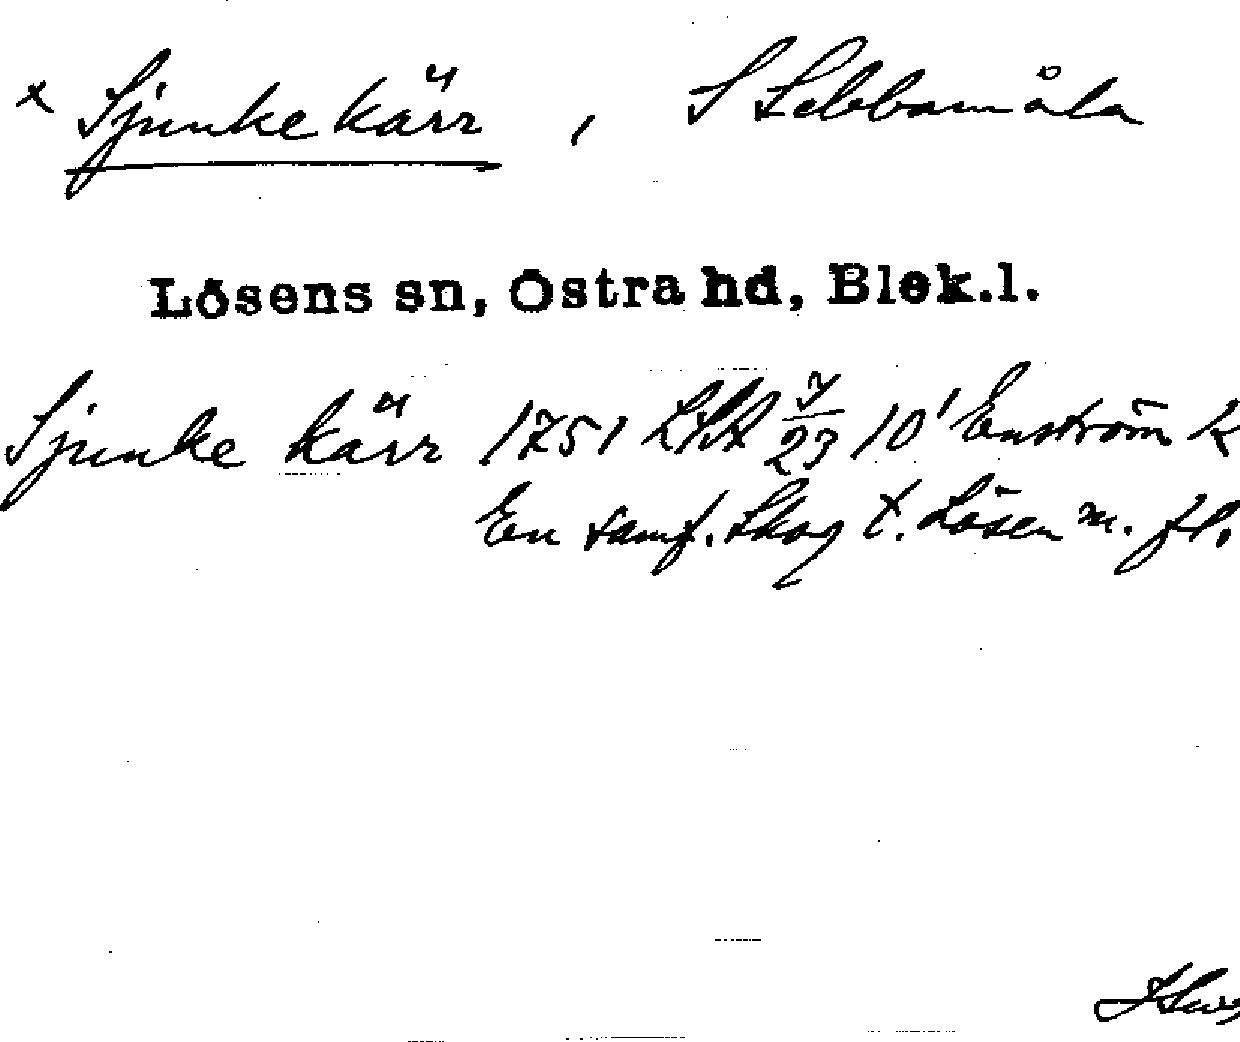 x Sjunkekärr , S Sebbamåla
Lösens sn, Östra hd, Blek.l.
Sjunke kärr 1751 LSA 10' Enström K
En samf. Skog t. Lösen m. fl.